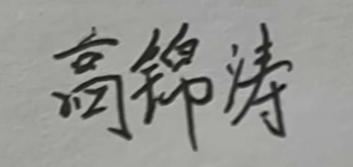 高锦涛